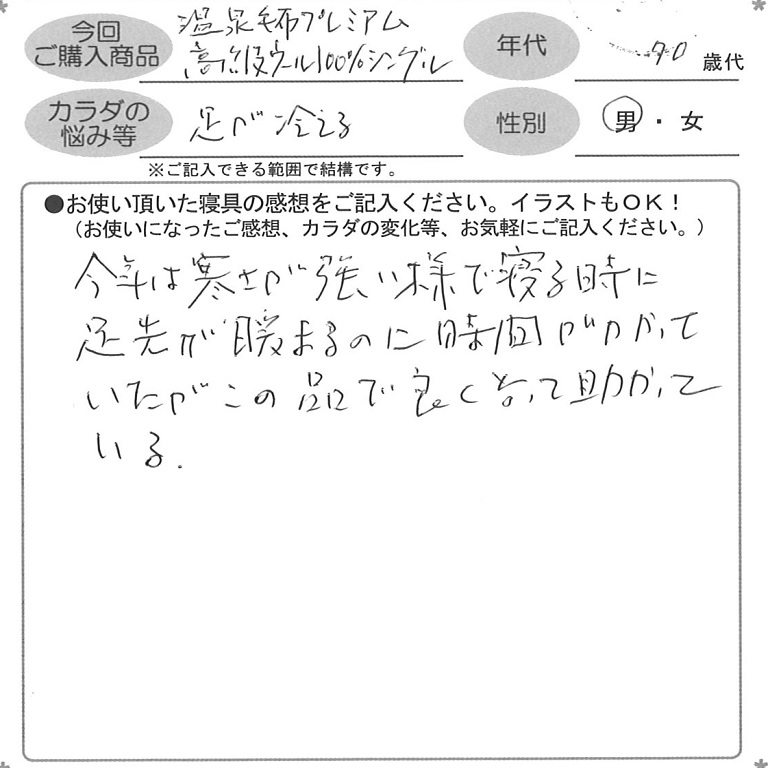 今回
ご購入商品
温泉毛布プレミアム
高級ウール100%シングル
年代
70 歳代
カラダの
悩み等
足が冷える
性別
男・女
※ご記入できる範囲で結構です。
●お使い頂いた寝具の感想をご記入ください。イラストもOK!
(お使いになったご感想、カラダの変化等、お気軽にご記入ください。)
今年は寒さが強い様で寝る時に
足先が暖まるのに時間がかかって
いたがこの品で良くなって助かって
いる.